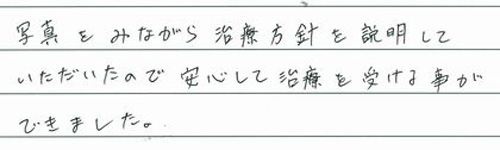 写真をみながら治療方針を説明して
いただいたので安心して治療を受ける事が
できました。